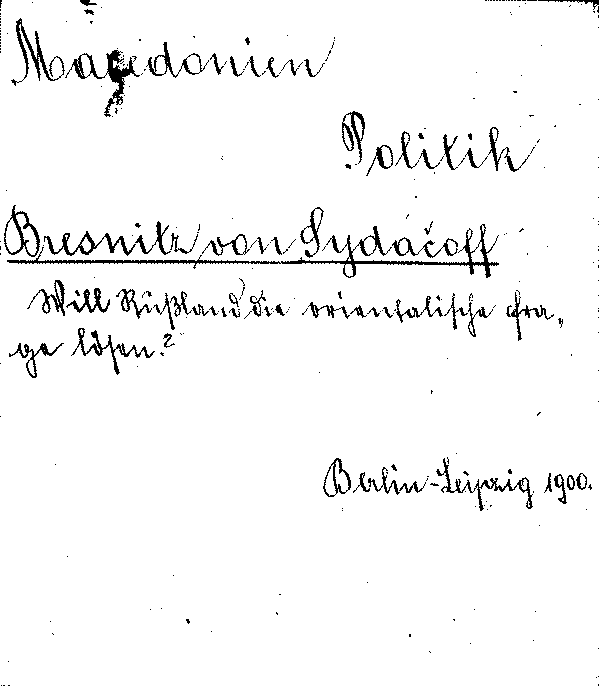 Macedonien
Politik
Bresnitz von Sydačoff
Will Rußland die orientalische Fra-
ge lösen?
Berlin-Leipzig 1900.